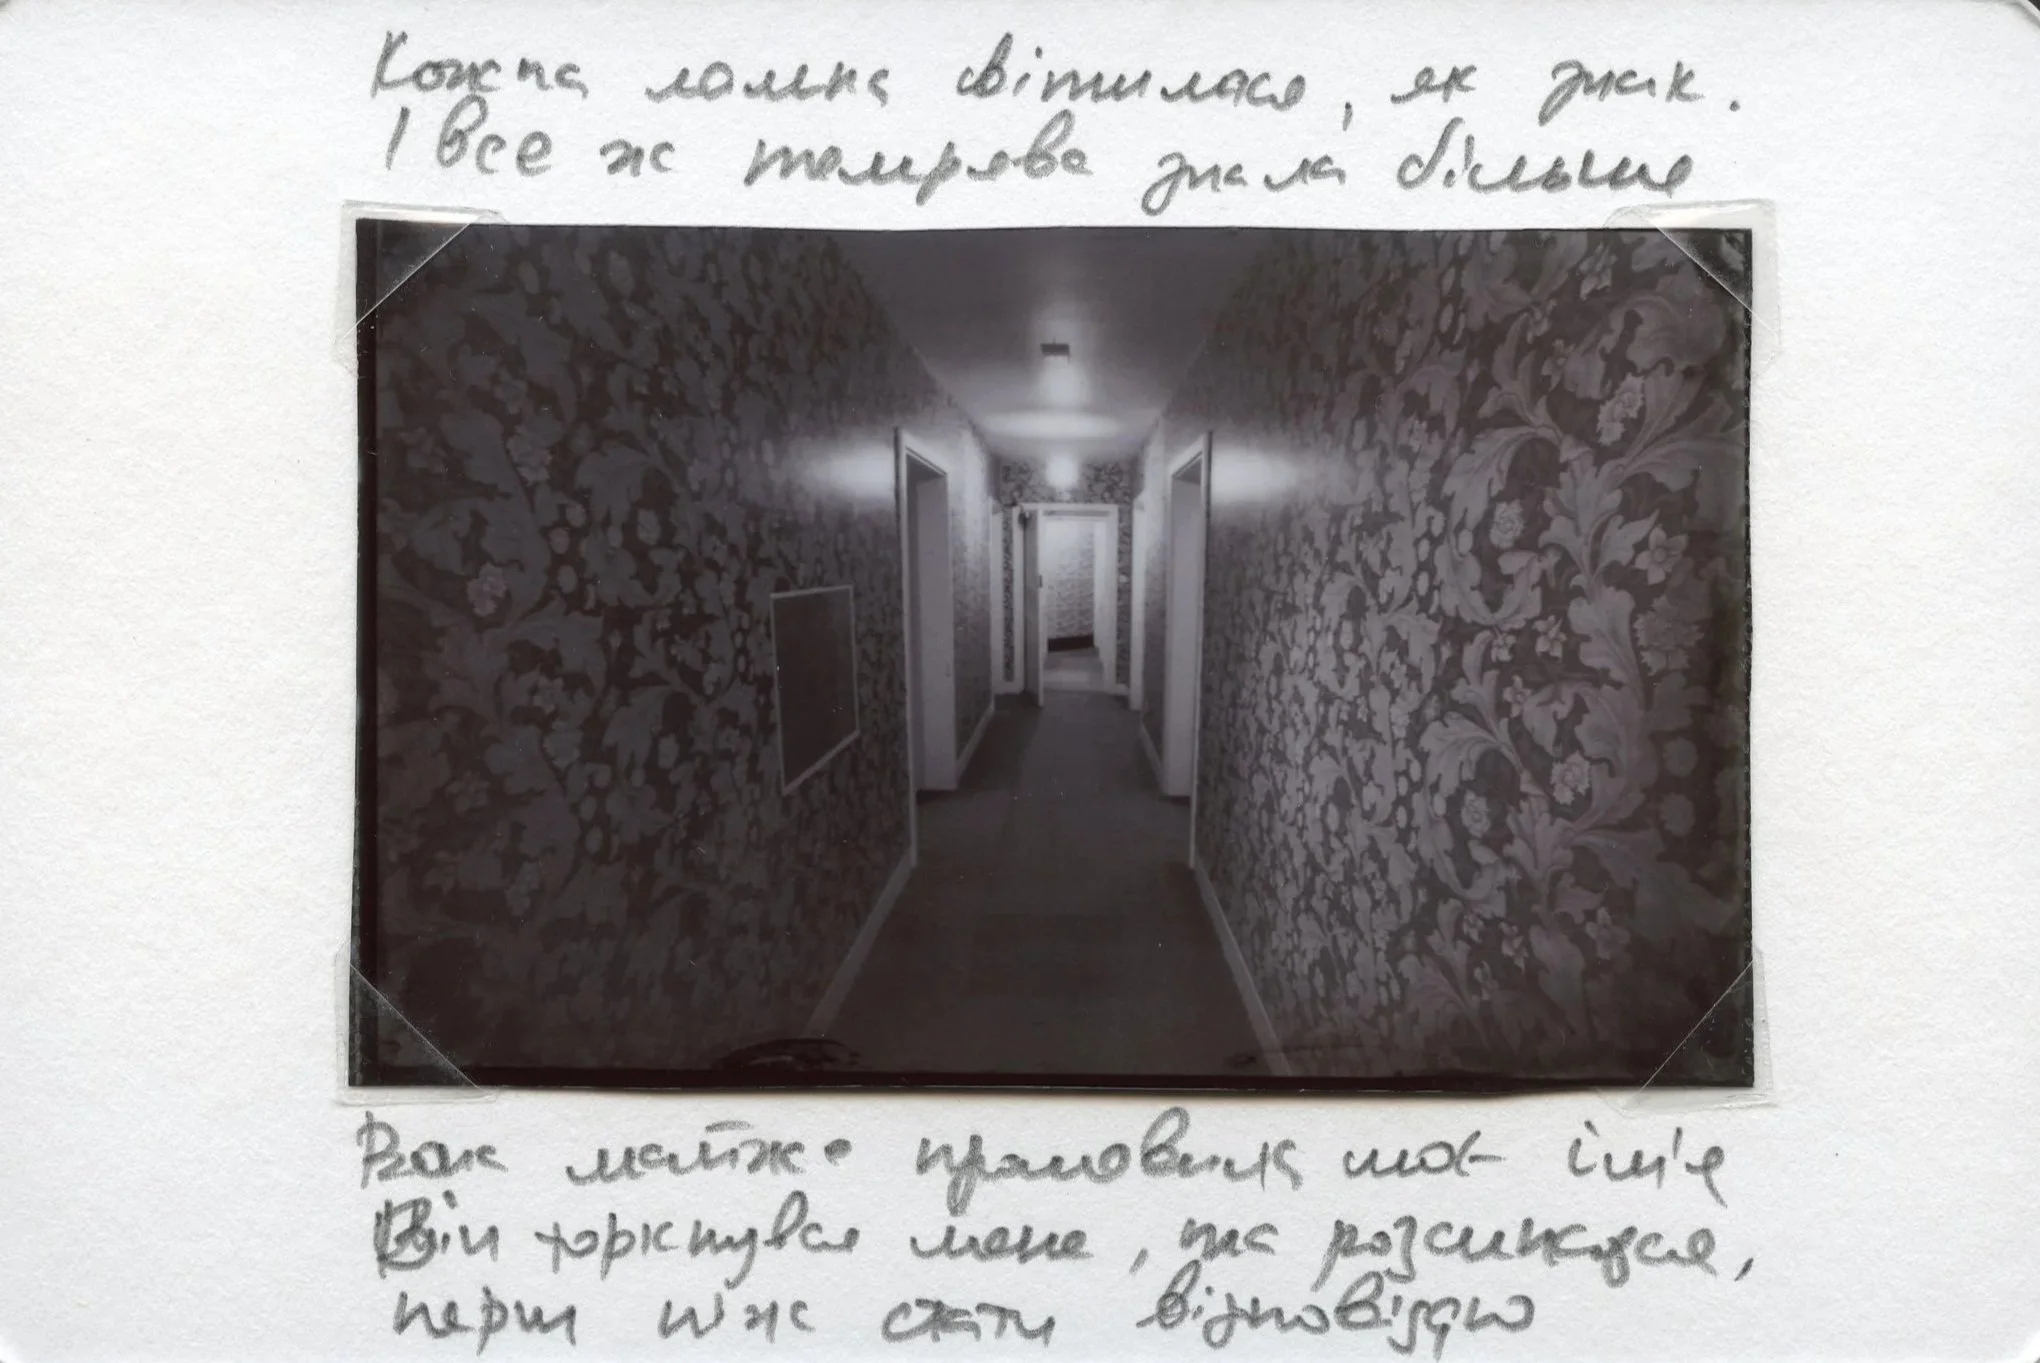 Кожна лампа світилася, як знак.
І все ж темрява знала більше
Вона майже промовила моє ім'я
Він торкнувся мене, та розсипався,
перш ніж стати відповіддю